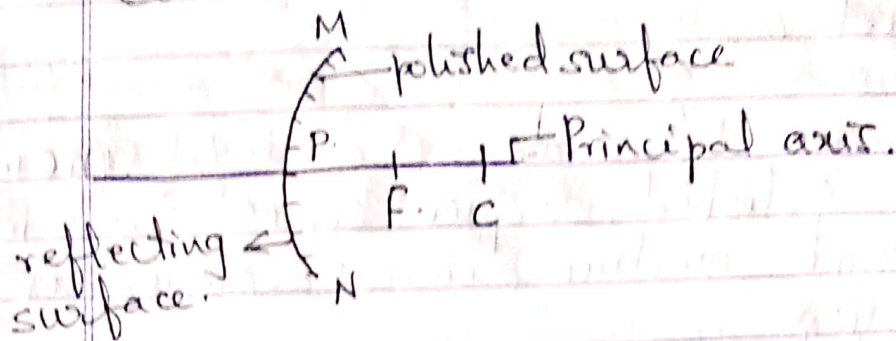 M
polished surface
P.
Principal axis.
F. C
reflecting
surface.
N